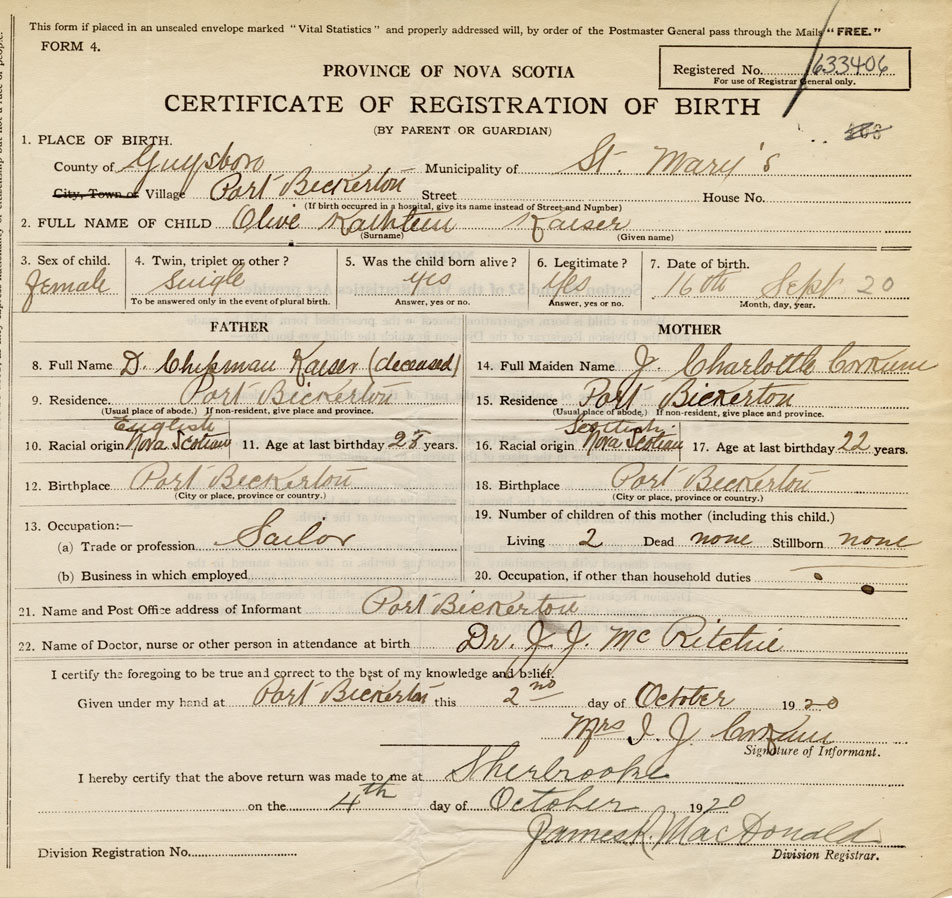 This form if placed in an unsealed envelope marked "Vital Statistics" and properly addressed will, by order of the Postmaster General pass through the Mails "FREE."
FORM 4.
Registered No. 633406
For use of Registrar General only.
PROVINCE OF NOVA SCOTIA
CERTIFICATE OF REGISTRATION OF BIRTH
(BY PARENT OR GUARDIAN)
1. PLACE OF BIRTH.
County of Guysboro Municipality of St. Mary's
City, Town or Village Port Bickerton Street House No.
(If birth occurred in a hospital, give its name instead of Street and Number)
2. FULL NAME OF CHILD Olive Kathleen Kaiser
(Surname) (Given name)
3. Sex of child. 4. Twin, triplet or other? 5. Was the child born alive? 6. Legitimate? 7. Date of birth.
Female Single yes Yes 16th Sept 20
To be answered only in the event of plural birth. Answer, yes or no. Answer, yes or no. Month, day, year.
FATHER MOTHER
8. Full Name D. Chipman Kaiser (deceased) 14. Full Maiden Name J. Charlotte Corkum
9. Residence. Port Bickerton 15. Residence Port Bickerton
(Usual place of abode.) If non-resident, give place and province. (Usual place of abode.) If non-resident, give place and province.
English Scottish
10. Racial origin Nova Scotian 11. Age at last birthday 25 years. 16. Racial origin Nova Scotian 17. Age at last birthday 22 years.
12. Birthplace Port Bickerton 18. Birthplace Port Bickerton
(City or place, province or country.) (City or place, province or country.)
13. Occupation:— 19. Number of children of this mother (including this child.)
(a) Trade or profession Sailor Living 2 Dead none Stillborn none
(b) Business in which employed 20. Occupation, if other than household duties
21. Name and Post Office address of Informant Port Bickerton
22. Name of Doctor, nurse or other person in attendance at birth Dr. J. J. McRitchie
I certify the foregoing to be true and correct to the best of my knowledge and belief.
Given under my hand at Port Bickerton this 2nd day of October 1920
Mrs I. J. Corkum
Signature of Informant.
I hereby certify that the above return was made to me at Sherbrooke
on the 4th day of October 1920
James R. MacDonald
Division Registration No. Division Registrar.